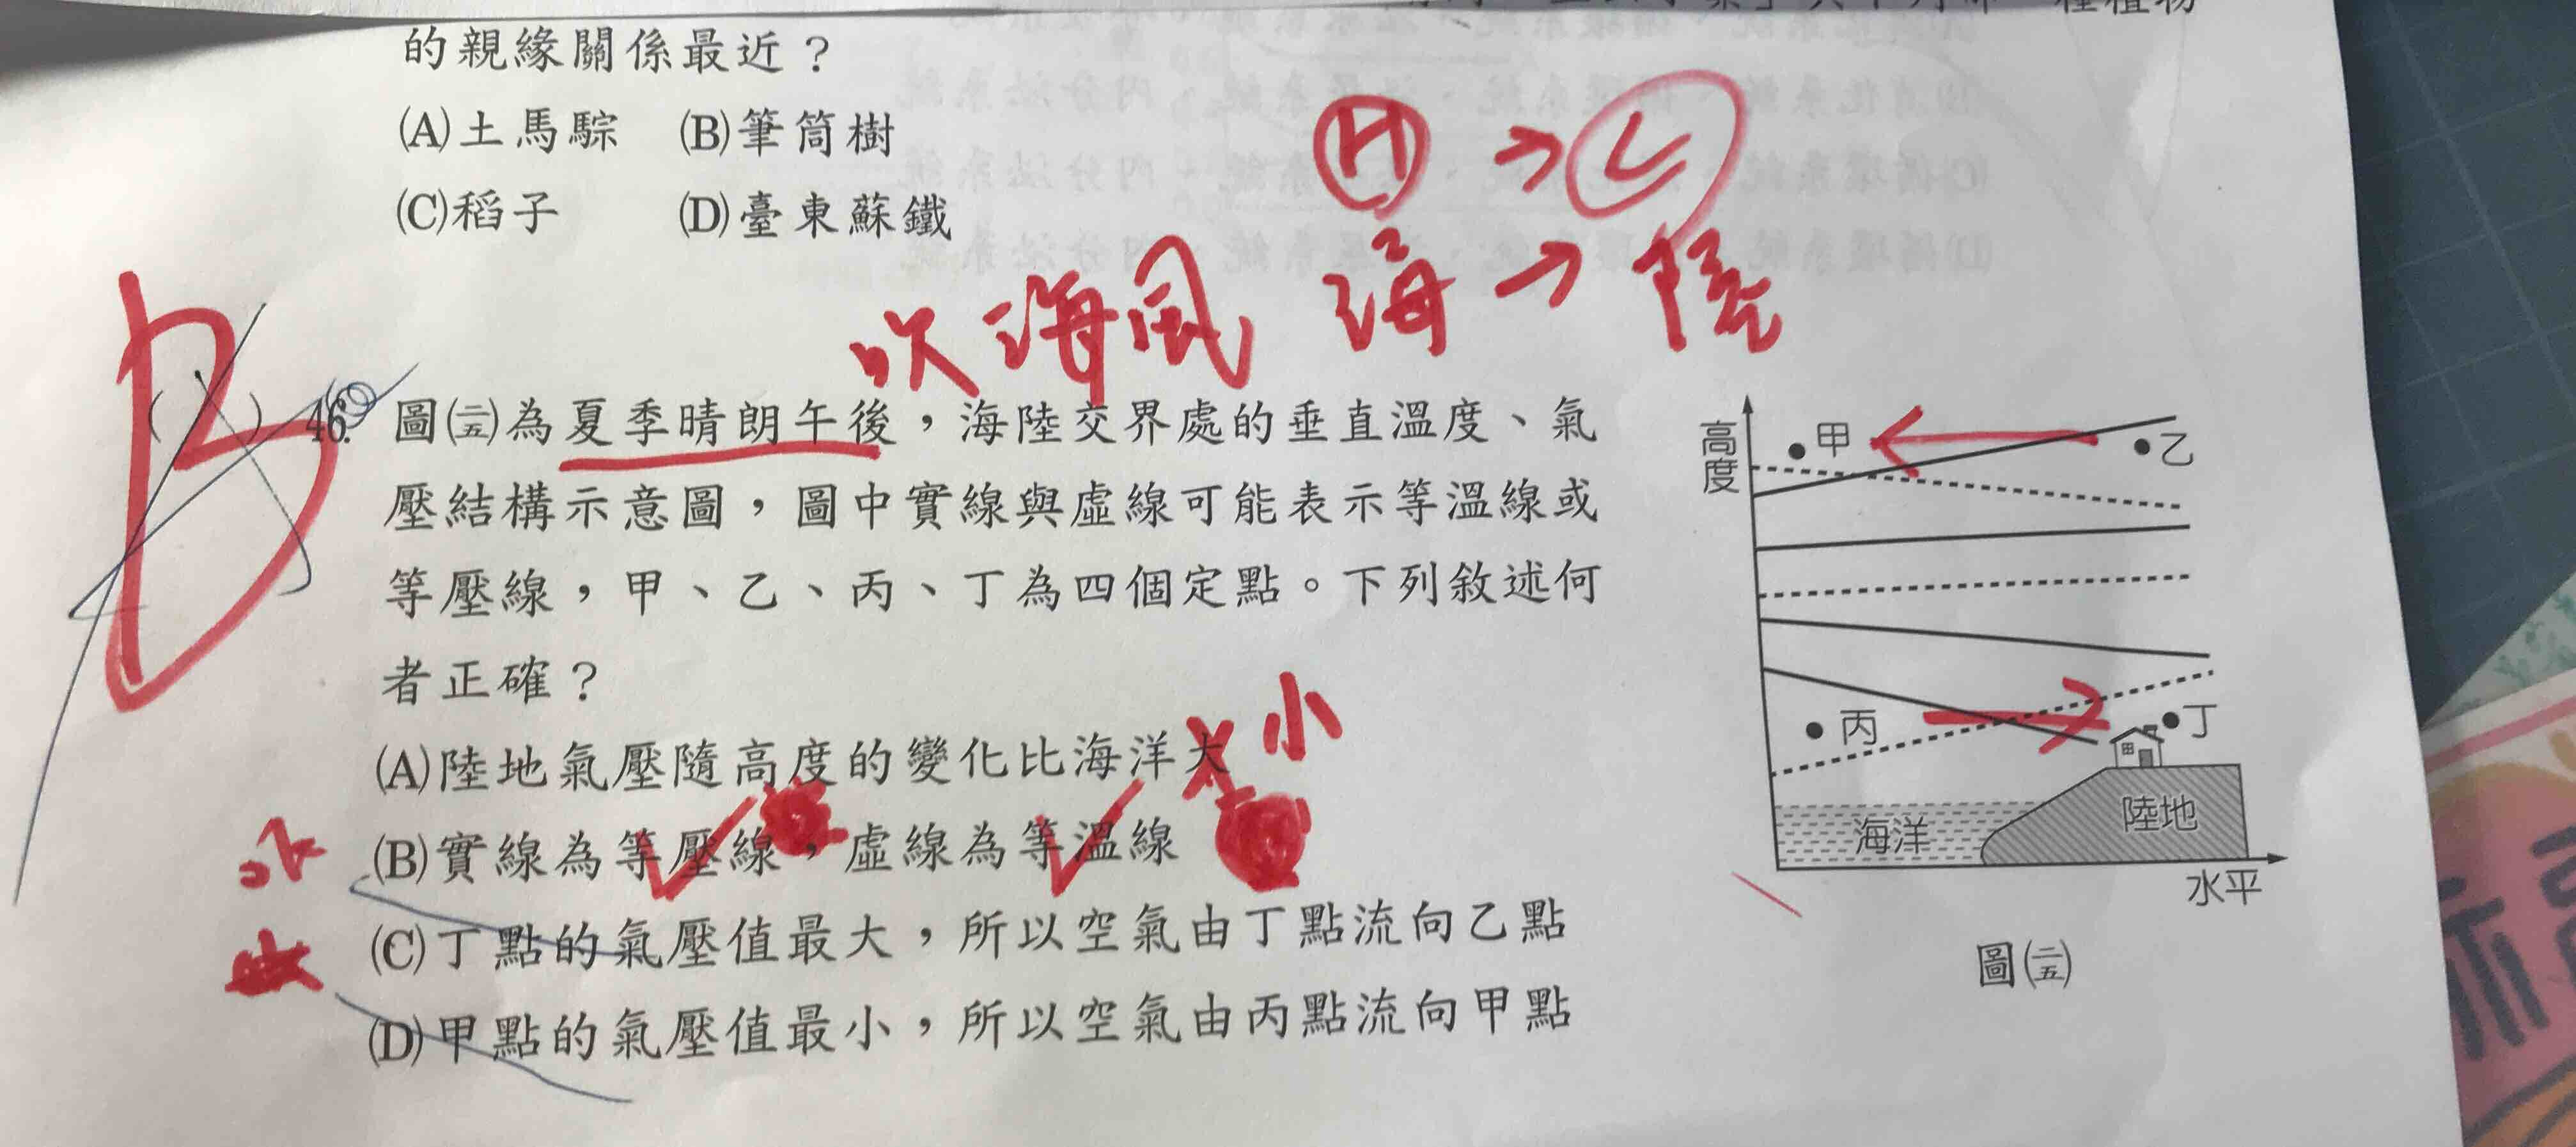 的親緣關係最近？
(A)土馬騌 (B)筆筒樹
(C)稻子 (D)臺東蘇鐵
H → L
吹海風 海 → 陸
B
( ) 46. 圖(二五)為夏季晴朗午後，海陸交界處的垂直溫度、氣
壓結構示意圖，圖中實線與虛線可能表示等溫線或
等壓線，甲、乙、丙、丁為四個定點。下列敘述何
者正確？
(A)陸地氣壓隨高度的變化比海洋大 小
(B)實線為等壓線，虛線為等溫線
(C)丁點的氣壓值最大，所以空氣由丁點流向乙點
(D)甲點的氣壓值最小，所以空氣由丙點流向甲點
高度
甲
乙
丙
丁
海洋
陸地
水平
圖(二五)